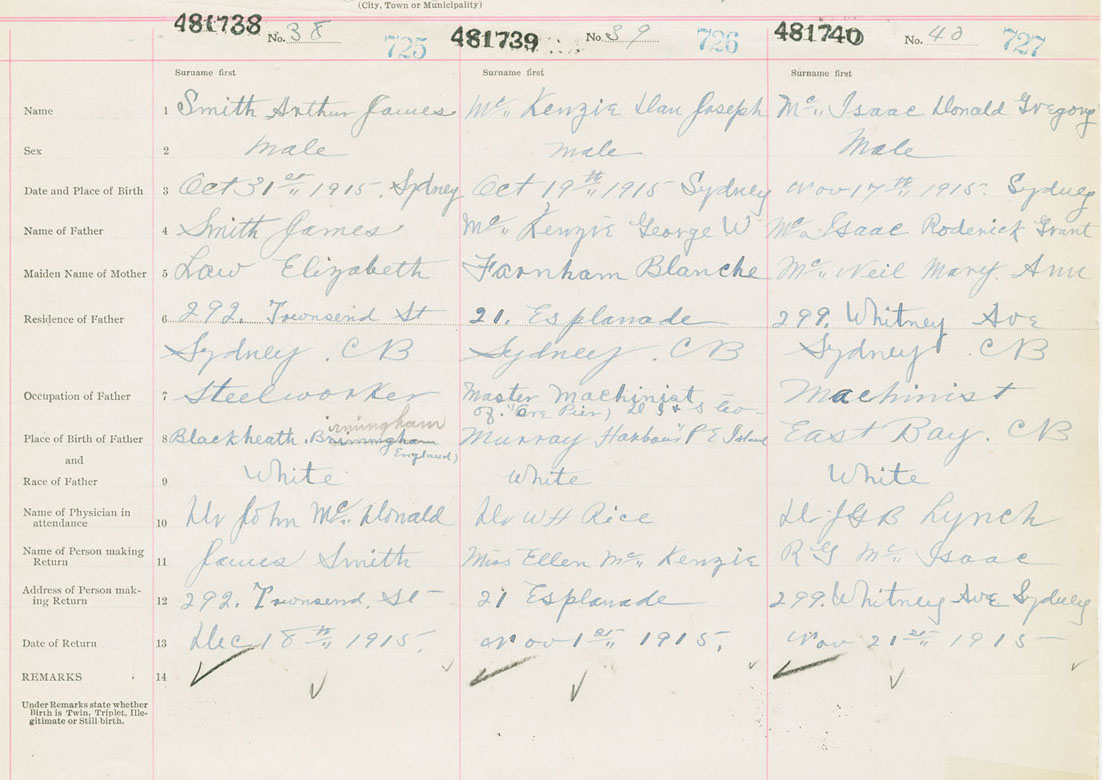 (City, Town or Municipality)
481738 No. 38 725 481739 No. 39 726 481740 No. 40 727
Surname first Surname first Surname first
Name 1 Smith Arthur James Mc„ Kenzie Dan Joseph Mc„ Isaac Donald Gregory
Sex 2 Male Male Male
Date and Place of Birth 3 Oct 31st„ 1915. Sydney Oct 19th„ 1915 Sydney Nov 17th„ 1915. Sydney
Name of Father 4 Smith James Mc„ Kenzie George W Mc„ Isaac Roderick Grant
Maiden Name of Mother 5 Law Elizabeth Farnham Blanche Mc„ Neil Mary. Ann
Residence of Father 6 292. Townsend St 21. Esplanade 299. Whitney Ave
Sydney. CB Sydney. CB Sydney. CB
Occupation of Father 7 Steelworker Master Machinist Machinist
of "Ore Pier, D I & S Co-
irmingham
Place of Birth of Father 8 Blackheath. Birmingham Murray Harbour P E Island East Bay. CB
England)
and
Race of Father 9 White White White
Name of Physician in attendance 10 Dr John Mc„ Donald Dr W H Rice Dr J G B Lynch
Name of Person making Return 11 James Smith Miss Ellen Mc„ Kenzie R G Mc„ Isaac
Address of Person mak-ing Return 12 292. Townsend. St 21 Esplanade 299. Whitney Ave Sydney
Date of Return 13 Dec 18th„ 1915. Nov 1st„ 1915. Nov 21st„ 1915
REMARKS 14
Under Remarks state whether
Birth is Twin, Triplet, Ille-
gitimate or Still-birth.